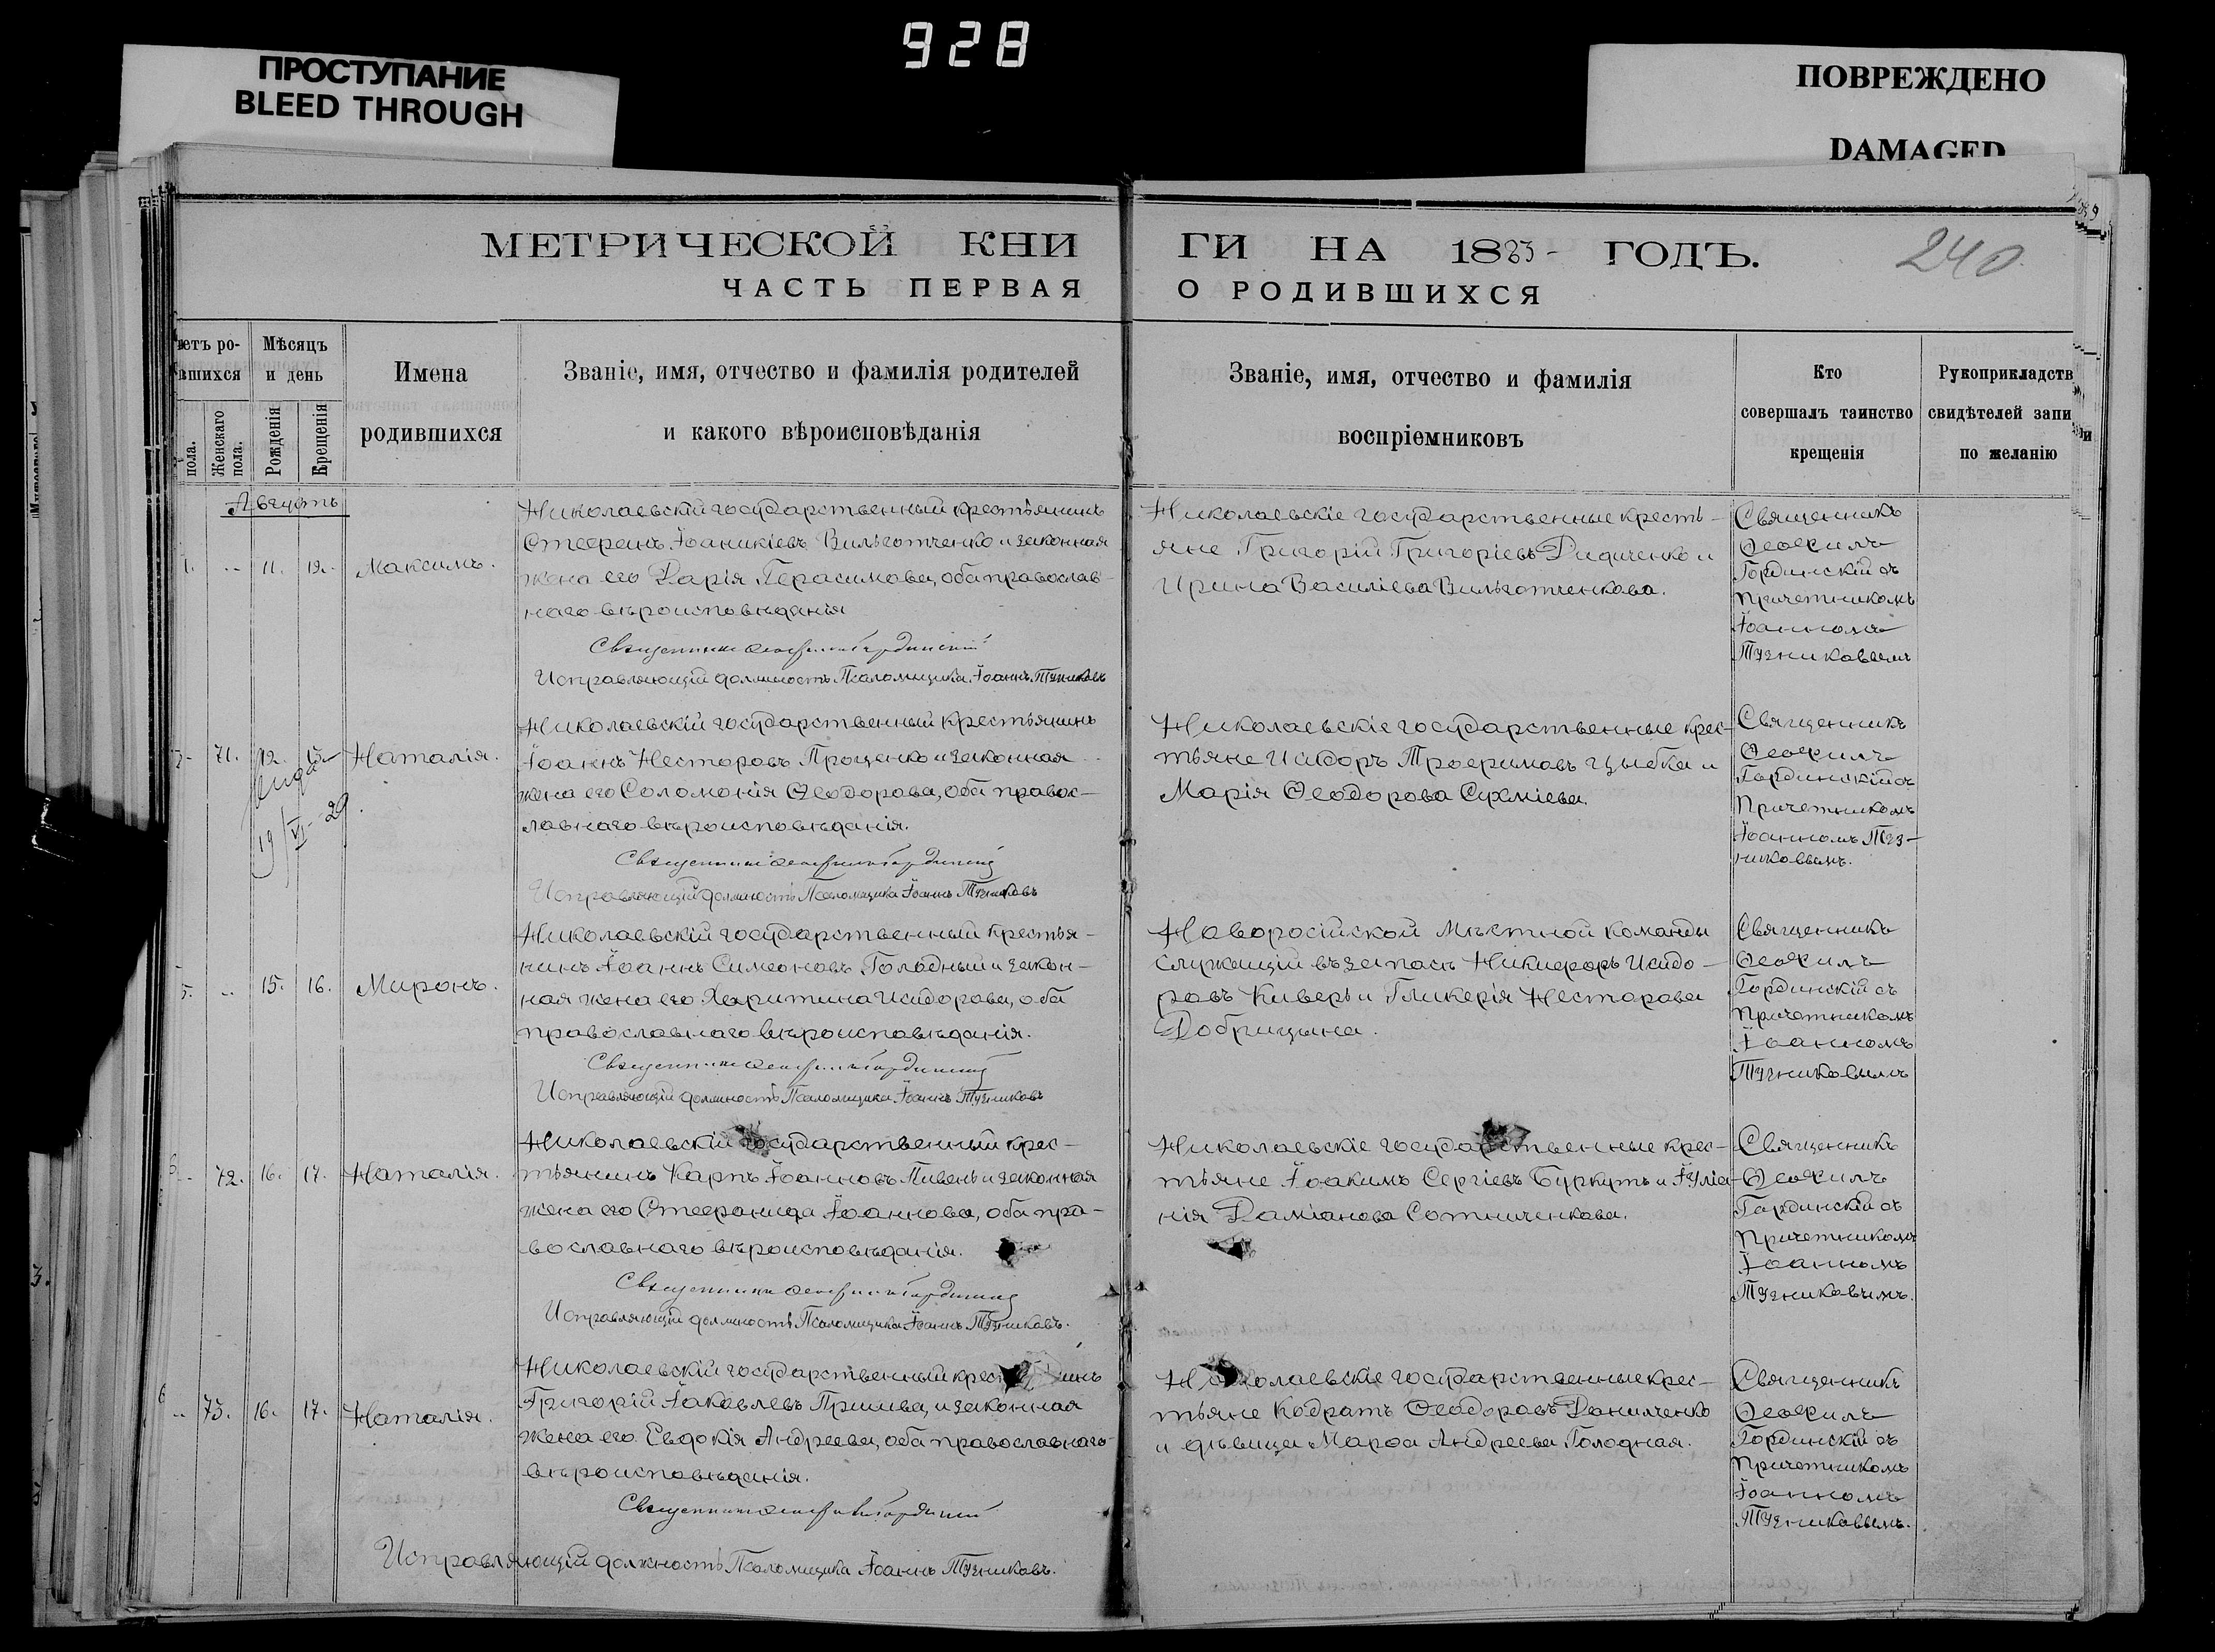 928
ПРОСТУПАНИЕ
BLEED THROUGH
ПОВРЕЖДЕНО
DAMAGED
МЕТРИЧЕСКОЙ КНИ ГИ НА 1883 - ГОДЪ.
240
ЧАСТЬ ПЕРВАЯ О РОДИВШИХСЯ
етъ ро-
вшихся
Мѣсяцъ
и день
пола.
Женскаго
пола.
Рожденія
Крещенія
Имена
родившихся
Званіе, имя, отчество и фамилія родителей
и какого вѣроисповѣданія
Званіе, имя, отчество и фамилія
воспріемниковъ
Кто
совершалъ таинство
крещенія
Рукоприкладств
свидѣтелей запи
по желанію
Августъ
11. 12. Максимъ.
Николаевскій государственный крестьянинъ
Стефанъ Іоаникіевъ Вильготченко и законная
жена его Дарія Герасимова, оба православ-
наго вѣроисповѣданія
Священникъ Гординскій
Исправляющій должность Псаломщика Іоаннъ Тузниковъ
Николаевскіе государственные кресть-
яне Григорій Григоріевъ Дидиченко и
Ирина Василіева Вильготченкова.
Священникъ
Ѳеофилъ
Гординскій съ
Причетникомъ
Іоанномъ
Тузниковымъ
71. 12. 13. Наталія.
19/VI-29.
Николаевскій государственный крестьянинъ
Іоаннъ Несторовъ Проценко и законная
жена его Соломонія Ѳеодорова, оба правос-
лавнаго вѣроисповѣданія.
Священникъ Гординскій
Исправляющій должность Псаломщика Іоаннъ Тузниковъ
Николаевскіе государственные крес-
тьяне Исидоръ Трофимовъ Цыбка и
Марія Ѳеодорова Сухміева.
Священникъ
Ѳеофилъ
Гординскій съ
Причетникомъ
Іоанномъ Туз-
никовымъ.
15. 16. Миронъ.
Николаевскій государственный крестья-
нинъ Іоаннъ Симеоновъ Голодный и закон-
ная жена его Харитина Исидорова, оба
православнаго вѣроисповѣданія.
Священникъ Гординскій
Исправляющій должность Псаломщика Іоаннъ Тузниковъ
Наворосійской Мѣстной команды
служащій въ запасъ Никифоръ Исидо-
ровъ Киверь и Гликерія Несторова
Добрицына.
Священникъ
Ѳеофилъ
Гординскій съ
Причетникомъ
Іоанномъ
Тузниковымъ
72. 16. 17. Наталія.
Николаевскій государственный крес-
тьянинъ Карпъ Іоанновъ Пивень и законная
жена его Стефанида Іоаннова, оба пра-
вославнаго вѣроисповѣданія.
Священникъ Гординскій
Исправляющій должность Псаломщика Іоаннъ Тузниковъ.
Николаевскіе государственные крес-
тьяне Іоакимъ Сергіевъ Буркутъ и Іуліа-
нія Даміанова Сотниченкова.
Священникъ
Ѳеофилъ
Гординскій съ
Причетникомъ
Іоанномъ
Тузниковымъ.
73. 16. 17. Наталія.
Николаевскій государственный крестьянинъ
Григорій Іаковлевъ Пришва, и законная
жена его Евдокія Андреева, оба православнаго
вѣроисповѣданія.
Священникъ Гординскій
Исправляющій должность Псаломщика Іоаннъ Тузниковъ.
Николаевскіе государственные крес-
тьяне Кодратъ Ѳеодоровъ Данильченко
и дѣвица Марѳа Андреева Голодная.
Священникъ
Ѳеофилъ
Гординскій съ
Причетникомъ
Іоанномъ
Тузниковымъ.